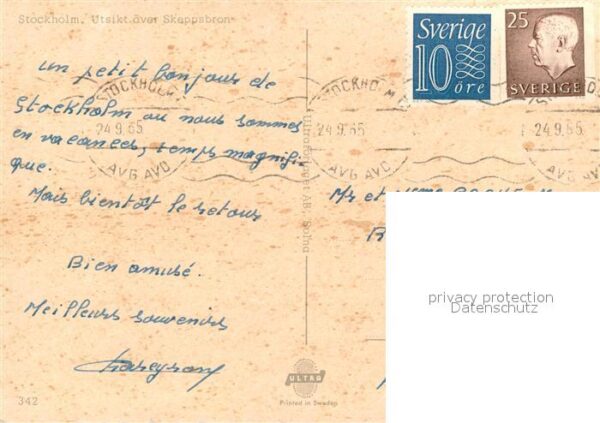 Stockholm. Utsikt över Skeppsbron
Sverige
10
öre
25
SVERIGE
un petit bonjour de
Stockholm ou nous sommes
en vacances, temps magnifi-
que.
Mais bientôt le retour
Bien amusé.
Meilleurs souvenirs
STOCKHOLM
24.9.65
AVG AVD
STOCKHOLM
24.9.65
AVG AVD
24.9.65
AVG AVD
Mr et Mme
Ultraförlaget AB, Solna
privacy protection
Datenschutz
ULTRA
Printed in Sweden
342